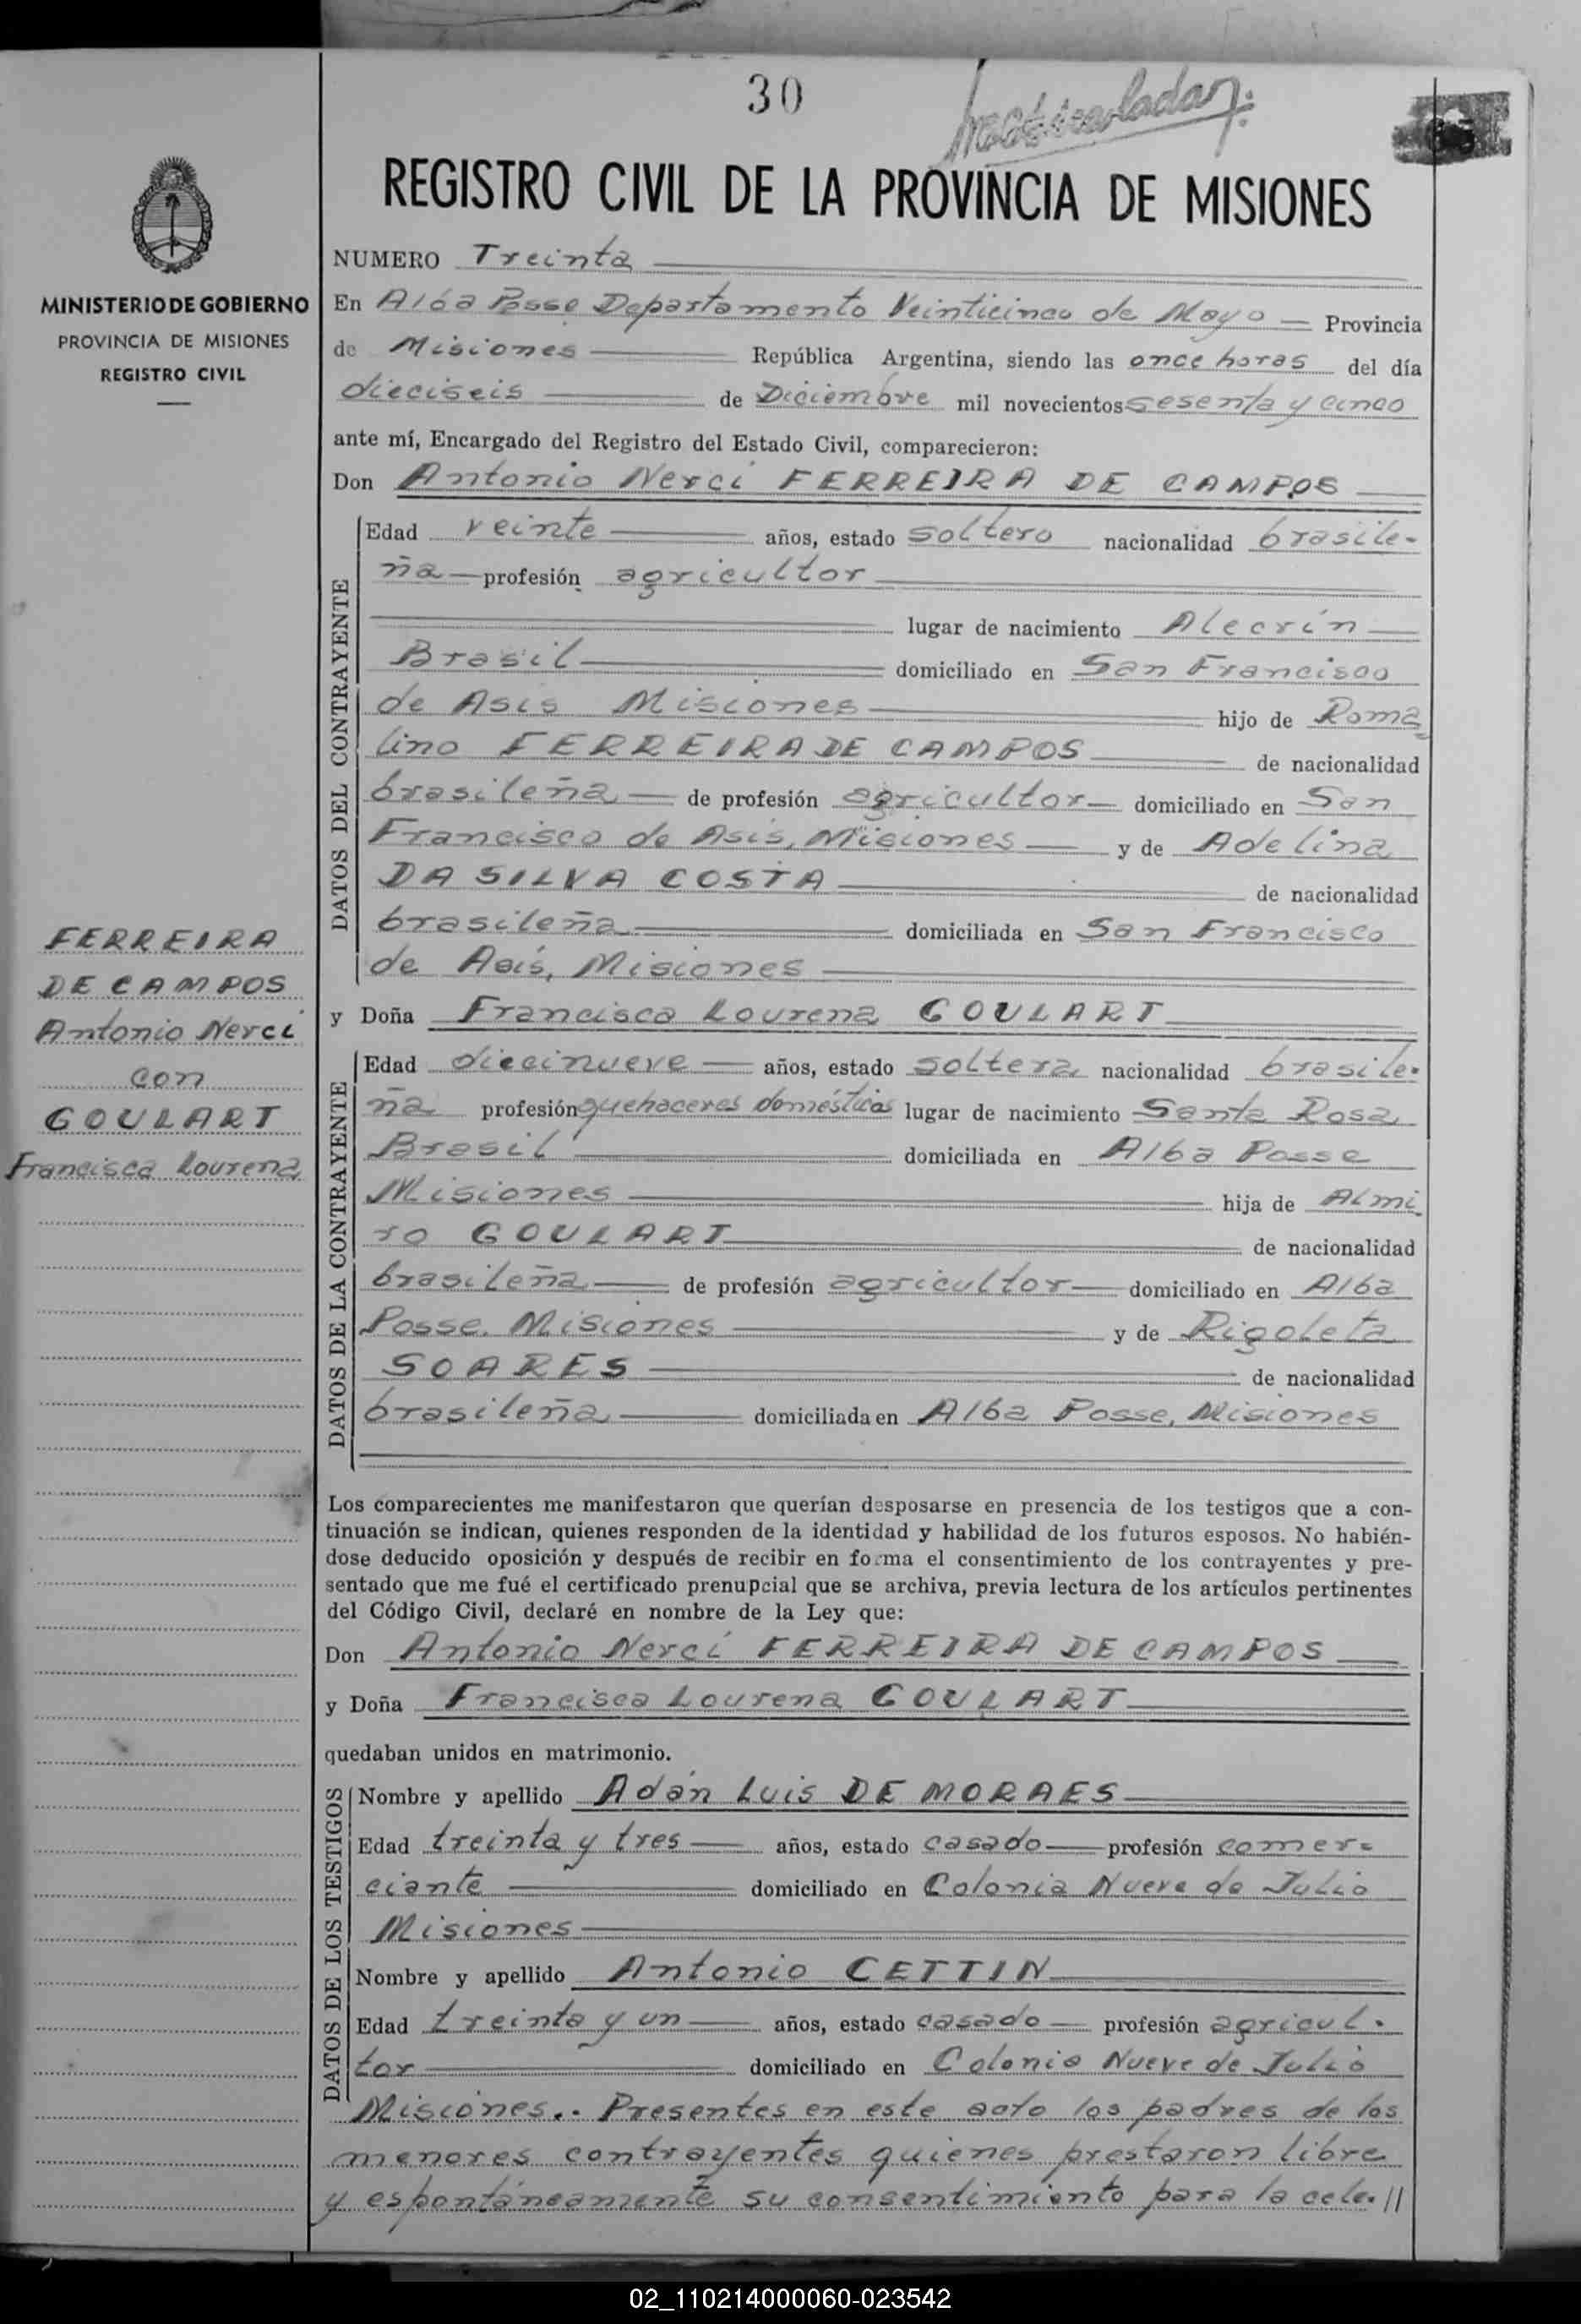 30
REGISTRO CIVIL DE LA PROVINCIA DE MISIONES
MINISTERIO DE GOBIERNO
PROVINCIA DE MISIONES
REGISTRO CIVIL
NUMERO Treinta
En Alba Posse Departamento Veinticinco de Mayo Provincia
de Misiones República Argentina, siendo las once horas del día
dieciseis de Diciembre mil novecientos sesenta y cinco
ante mí, Encargado del Registro del Estado Civil, comparecieron:
Don Antonio Nerci FERREIRA DE CAMPOS
DATOS DEL CONTRAYENTE
Edad veinte años, estado soltero nacionalidad brasile-
ña profesión agricultor
lugar de nacimiento Alecrín
Brasil domiciliado en San Francisco
de Asis Misiones hijo de Roma
lino FERREIRA DE CAMPOS de nacionalidad
brasileña de profesión agricultor domiciliado en San
Francisco de Asis, Misiones y de Adelina
DA SILVA COSTA de nacionalidad
brasileña domiciliada en San Francisco
de Asís, Misiones
FERREIRA
DE CAMPOS
Antonio Nerci
con
GOULART
Francisca Lourena
y Doña Francisca Lourena GOULART
DATOS DE LA CONTRAYENTE
Edad diecinueve años, estado soltera nacionalidad brasile-
ña profesión quehaceres domésticos lugar de nacimiento Santa Rosa
Brasil domiciliada en Alba Posse
Misiones hija de Almi
ro GOULART de nacionalidad
brasileña de profesión agricultor domiciliado en Alba
Posse. Misiones y de Rigoleta
SOARES de nacionalidad
brasileña domiciliada en Alba Posse, Misiones
Los comparecientes me manifestaron que querían desposarse en presencia de los testigos que a con-
tinuación se indican, quienes responden de la identidad y habilidad de los futuros esposos. No habién-
dose deducido oposición y después de recibir en forma el consentimiento de los contrayentes y pre-
sentado que me fué el certificado prenupcial que se archiva, previa lectura de los artículos pertinentes
del Código Civil, declaré en nombre de la Ley que:
Don Antonio Nerci FERREIRA DE CAMPOS
y Doña Francisca Lourena GOULART
quedaban unidos en matrimonio.
DATOS DE LOS TESTIGOS
Nombre y apellido Adán Luis DE MORAES
Edad treinta y tres años, estado casado profesión comer-
ciante domiciliado en Colonia Nueve de Julio
Misiones
Nombre y apellido Antonio CETTIN
Edad treinta y un años, estado casado profesión agricul-
tor domiciliado en Colonia Nueve de Julio
Misiones.. Presentes en este acto los padres de los
menores contrayentes quienes prestaron libre
y espontáneamente su consentimiento para la cele-//
02_110214000060-023542